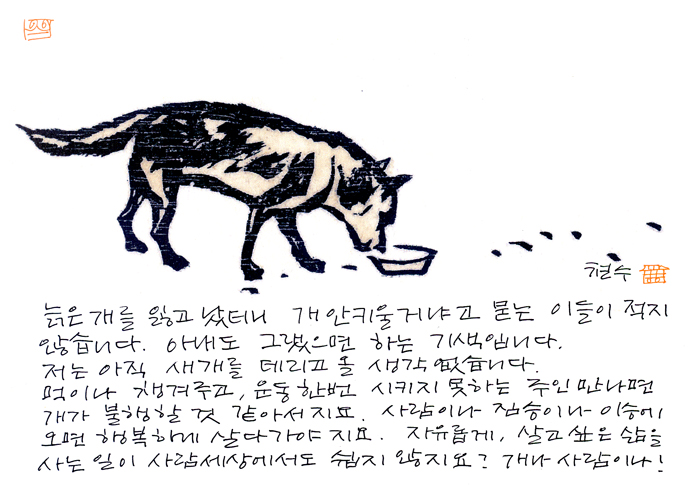 현수
늙은 개를 잃고 났더니 개 안키울거냐고 묻는 이들이 적지
않습니다. 아내도 그랬으면 하는 기색입니다.
저는 아직 새개를 데리고 올 생각 없습니다.
먹이나 챙겨주고, 운동한번 시키지 못하는 주인 만나면
개가 불행할 것 같아서지요. 사람이나 짐승이나 이승에
오면 행복하게 살다가야지요. 자유롭게, 살고 싶은 삶을
사는 일이 사람세상에서도 쉽지 않지요? 개나 사람이나!